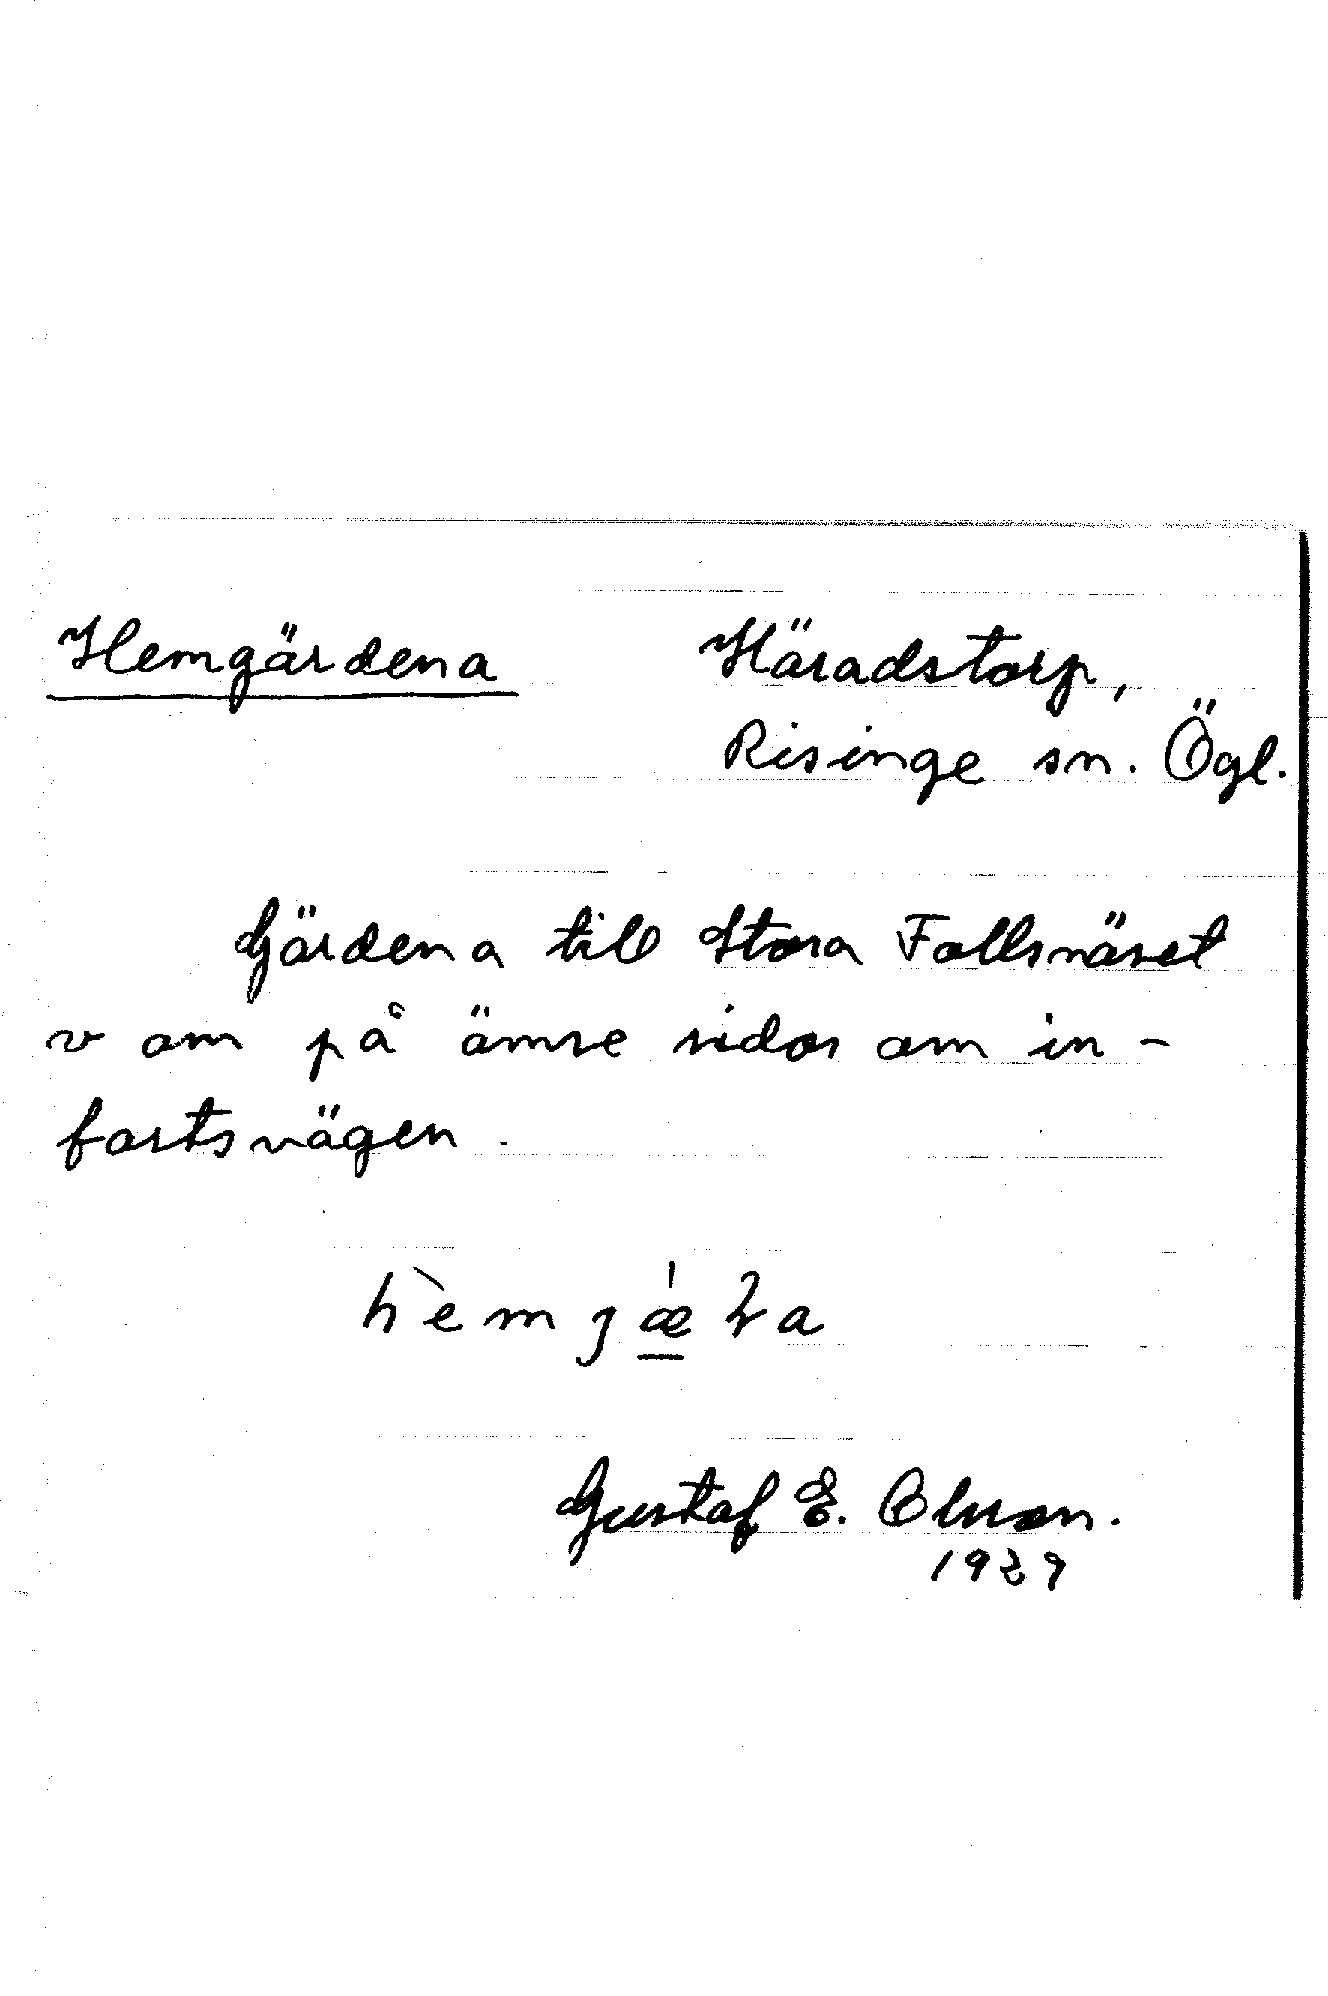 Hemgärdena Häradstorp,
Risinge sn. Ögl.
Gärdena till Stora Fallsnäset
v om på ömse sidor om in-
fartsvägen.
Gustaf E. Olsson.
1939